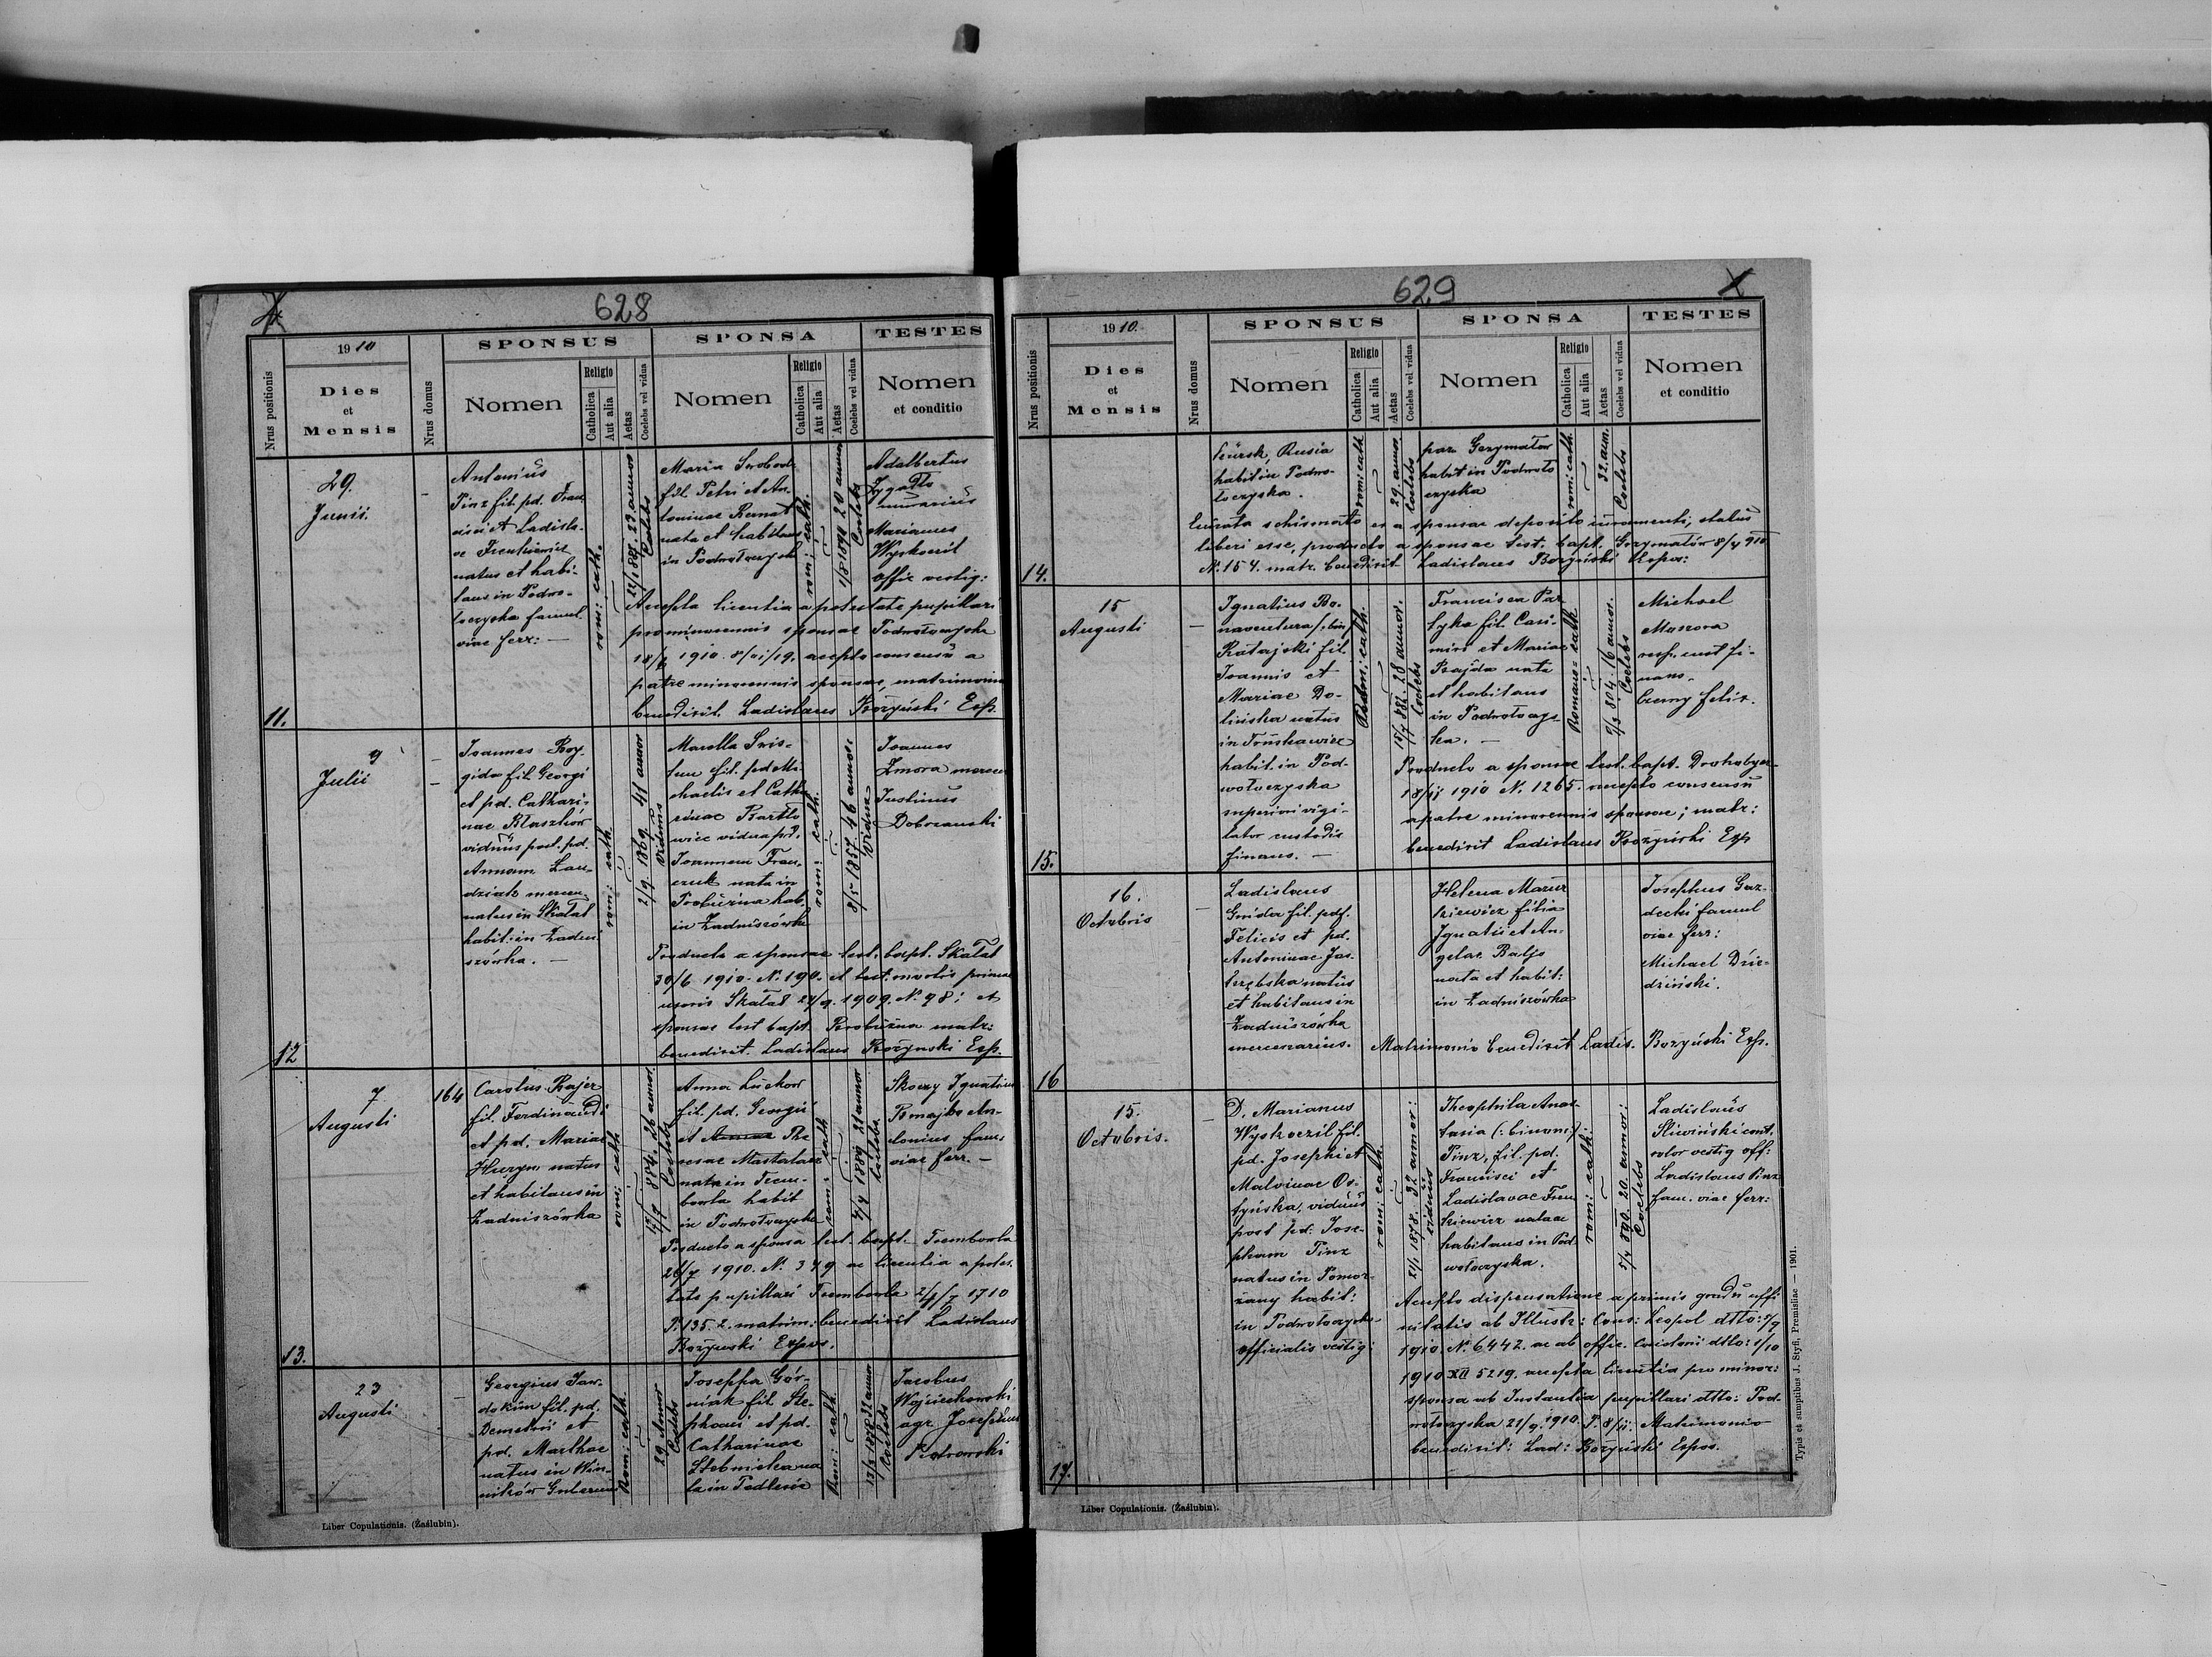 628
19 10
SPONSUS
SPONSA
TESTES
Nrus positionis
Dies
et
Mensis
Nrus domus
Nomen
Religio
Catholica
Aut alia
Aetas
Coelebs vel vidua
Nomen
Religio
Catholica
Aut alia
Aetas
Coelebs vel vidua
Nomen
et conditio
11.
29.
Junii.
Antonius
Pinz fil. pd. Fran
cisci et Ladisla-
ae
natus et habi-
tans in Podwo-
łoczyska famul
viae ferr: —
rom: cath.
23 annor
Coelebs
Maria Swoboda
fil. Petri et An-
toninae Bernat
nata et habitans
in Podwołoczysk
rom: cath.
1/8 1890 20 annor
Coelebs
Adalbertus
Zygadło
murarius
Marianus
Wyskoczil
offic vestig:
Accepta licentia a potestate pupillari
pro minorennis sponsae Podwołoczyska
18/6 1910. 8/vi/19. accepto consensu a
patre minorennis sponsae, matrimonium
benedixit. Ladislaus Bożyński Exp.
12
9
Julii
Joannes Bry-
gider fil. Georgi
et pd. Cathari-
nae Błaszków
viduus post. pd.
Annam Lau-
dziak mercen
natus in Skałat
habit. in Zadni
szówka. —
rom: cath
2/9. 1869 41 annor
viduus
Marella Sris-
fil. pd. Mi-
chaelis et Catha
rinae Bartko
wiec vidua pd.
Joannem Fran-
czuk nata in
Probużna hab.
in Zadniszówka
rom: cath.
8/5 1857. 46 annor.
Vidua
Joannes
Zmora mercen
Justinus
Dobrzanski
Producto a sponsae test. bapt. Skałat
30/6 1910. N. 190. et test. mortis primae
uxoris Skałat 27/9. 1909. N. 98: et
sponsae test bapt. Probużna matr:
benedixit. Ladislaus Bożynski Exp.
13.
7
Augusti
164
Carolus Bajer
fil. Ferdinandi
et pd. Mariae
Huzyn natus
et habitans in
Zadniszówka
rom: cath
884. 26 annor
Coelebs
Anna Luckow
fil. pd. Georgii
et Annae The
resae Mastalarz
nata in Trem-
bowla habit
in Podwołoczyska
rom: cath
1889 21 annor
Coelebs
Skoczy Ignatius
Romajko An-
tonius fam.
viae ferr. —
Producto a sponsa test. bapt. Trembowla
26/7 1910. N. 349 ac licentia a potes-
tate pupillari Trembowla 1910
P. 135. 2. matrim: benedixit Ladislaus
Bożynski Expos.
23
Augusti
Georgius Jaw-
dokim fil. pd.
Demetrii et
pd. Marthae
natus in Win-
ników Gubernii
Rom: cath.
29 Annor
Coelebs
Josepha Gór-
niak fil. Ste
phani et pd.
Catharinae
Stebnicka na
ta in Podlesie
Rom: cath.
13/3 1878 32 annor
Coelebs
Jacobus
Wojciechowski
agr. Josephus
Piotrowski
Liber Copulationis. (Zaślubin).
629
19 10.
SPONSUS
SPONSA
TESTES
Nrus positionis
Dies
et
Mensis
Nrus domus
Nomen
Religio
Catholica
Aut alia
Aetas
Coelebs vel vidua
Nomen
Religio
Catholica
Aut alia
Aetas
Coelebs vel vidua
Nomen
et conditio
14.
Kursk, Rusia
habit in Podwo-
łoczyska.
rom: cath
29. annor
Coelebs
par. Grzymałów
habit in Podwoło
czyska
rom: cath
32. ann.
Coelebs
schismate ex a sponsae deposito iuramenti, status
liberi esse, producto a sponsae test. bapt. Grzymałów 8/7 910
N. 154. matr. benedixit Ladislaus Bożyński Expos:
15.
15
Augusti
Ignatius Bo-
naventura (:bin)
Ratajski fil.
Joannis et
Mariae Do-
lińska natus
in Truskawiec
habit. in Pod-
wołoczyska
superior vigi-
lator custodiae
finanz. —
Rom: cath.
882. 28 annor.
Coelebs
Francisca Par
tyka fil. Casi-
miri et Mariae
Bzajda nata
et habitans
in Podwołoczys
ka. —
Romano: cath
894. 16 annor.
Coelebs
Michael
Mazzora
resp. cust fi-
nanz.
Czerny Felix.
Producto a sponso test. bapt. Drohobycz
18/ii 1910 N. 1265. accepto consensu
a patre minorennis sponsae; matr:
benedixit Ladislaus Bożyński Exp
16
16.
Octobris
Ladislaus
Gnida fil. pdf.
Felicis et pd.
Antoninae Jas-
trzębska natus
et habitans in
Zadniszówka
mercenarius.
Helena Mazur
kiewicz filia
Ignatii et An-
gelae Baljo
nata et habit:
in Zadniszówka
Josephus Gaz-
decki famul
viae ferr:
Michael Dzie-
dziński.
Matrimonio benedixit Ladis. Bożyński Exp.
17.
15.
Octobris.
D. Marianus
Wyskoczil fil.
pd. Josephi et
Malvinae Os-
tyńska, viduus
post pd. Jose-
pham Pinz
natus in Pomor-
zany habit:
in Podwołoczyska
officialis vestig:
rom: cath.
1878. 32 annor:
viduus
Theophila Anas-
tasia (: binom:)
Pinz, fil. pd.
Francisci et
Ladislavae Fren
kiewicz nata ac
habitans in Pod
wołoczyska.
rom: cath:
890. 20. annor:
Coelebs
Ladislaus
Sliwiński cont.
rolor vestig off:
Ladislaus Pinz
fam. viae ferr:
Accepta dispensatione a primis gradu affi
nitatis ab Illustr: Cons: Leopol dtto:
1910. N. 6442. ac ab offic. dtto: 1/10
1910 XII 5219. accepta licentia pro minor:
sponsa ab Instantia pupillari dtto: Pod-
wołoczyska 21/9. 1910. P. 8/ii: Matrimonio
benedixit: Lad: Bożyński Expos.
Liber Copulationis. (Zaślubin).
Typis et sumptibus J. Styfi, Premisliae — 1901.